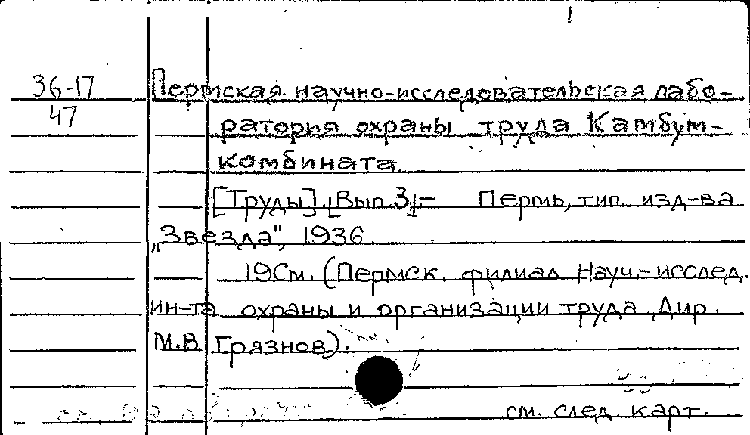 36-17
47
Пермская научно-исследовательская лабо-
ратория охраны труда Камбум-
комбината.
[Труды]. [Вып. 3]- Пермь, тип. изд-ва
„Звезда", 1936
19см. (Пермск. филиал Науч.-исслед.
ин-та охраны и организации труда. Дир.
М.В. Грязнов).
см. след. карт.